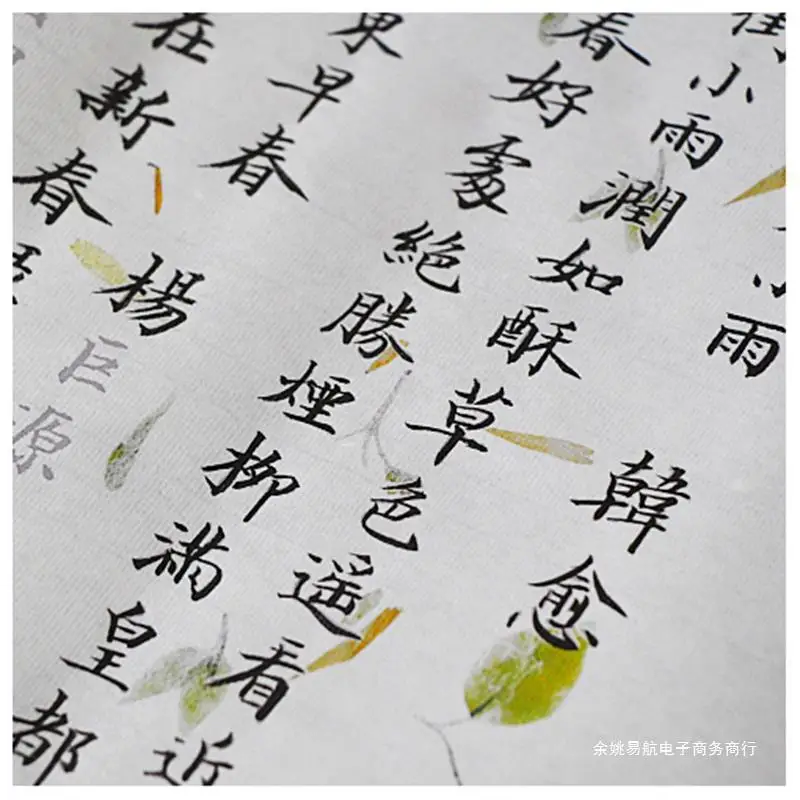 小雨 韓愈
街小雨潤如酥草色遥看近
春好處絶勝煙柳滿皇都
東早春 楊巨源
在新春
余姚易航电子商务商行